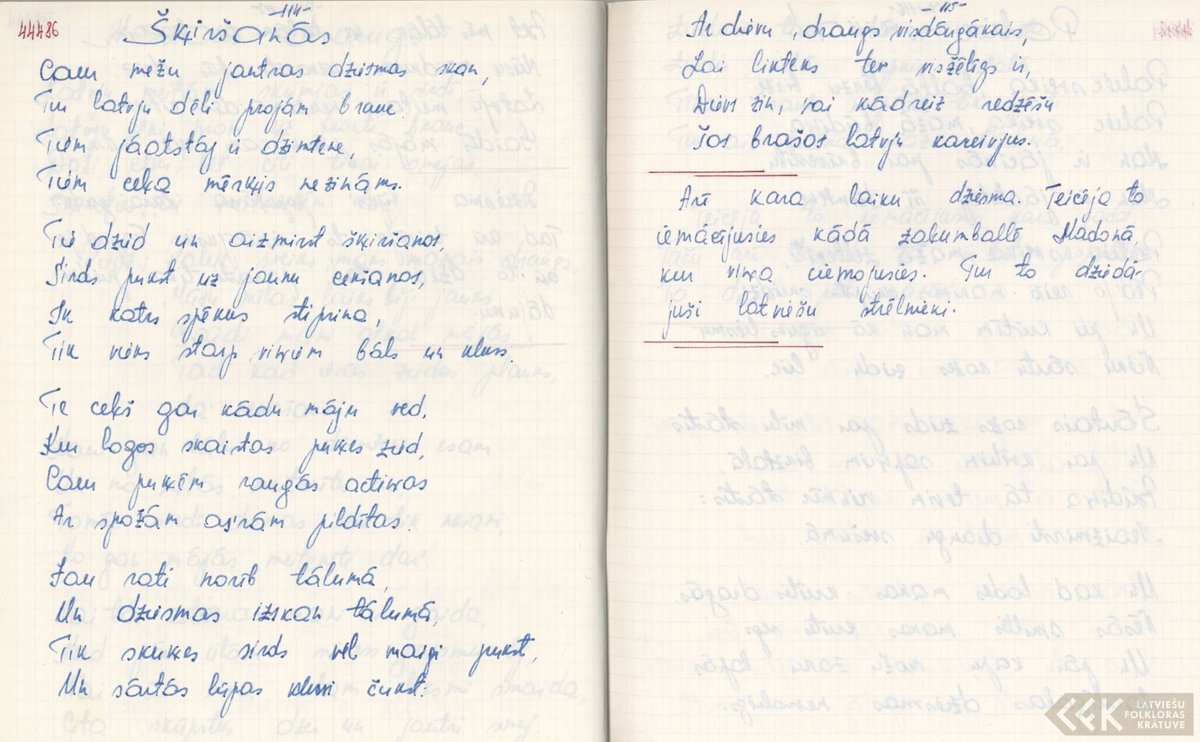 44486
-114-
Šķiršanās
Cam mežu jautras dziesmas skan,
Tur latvju dēli projām brauc.
Tiem jāatstāj ir dzimtene,
Tiem ceļa mērķis nezināms.
Tie dzied un aizmirst šķiršanos,
Sirds pukst uz jaunu cerīšanos,
Ik katrs spēkus stiprina,
Tik viens starp viņiem bāls un kluss.
Te ceļš gar kādu māju ved,
Kur logos skaistas puķes zied,
Caur puķēm raugās actiņas
Ar spožām asarām pildītas.
Jau rati norīb tālumā,
Un dziesmas izskan tālumā,
Tik skuķes sirds vēl maigi pukst,
Un sārtās lūpas klusi čukst:
-115-
Ar dievu, draugs visdārgākais,
Lai liktens tev vēlīgs ir,
Dievs zin, vai kādreiz redzēšu
Šos brašos latvju kareivjus.
Arī kara laiku dziesma. Teicēja to
iemācījusies kādā zaļumballē Madonā
kur viņa ciemojusies. Tur to dziedā-
juši latviešu strēlnieki.
LATVIEŠU
FOLKLORAS
KRĀTUVE